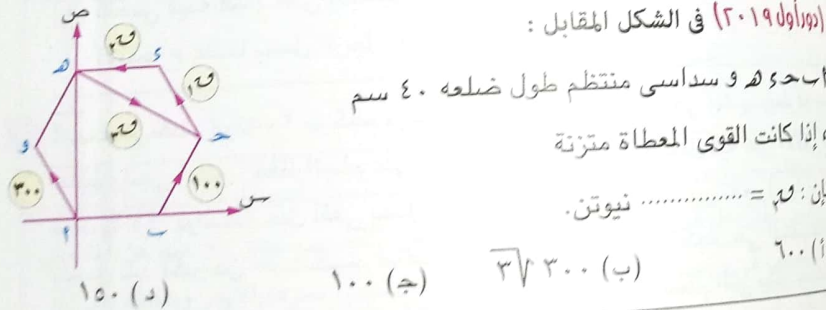 (دور أول ٢٠١٩) فى الشكل المقابل :
ا ب ح ء ه و سداسى منتظم طول ضلعه ٤٠ سم
، إذا كانت القوى المعطاة متزنة
إن : = .............. نيوتن.
أ) ٦٠٠
(ب) ٣٠٠ √٣
(ج) ١٠٠
(د) ١٥٠
ص
ه
ء
و
ح
٣٠٠
١٠٠
س
ا
ب